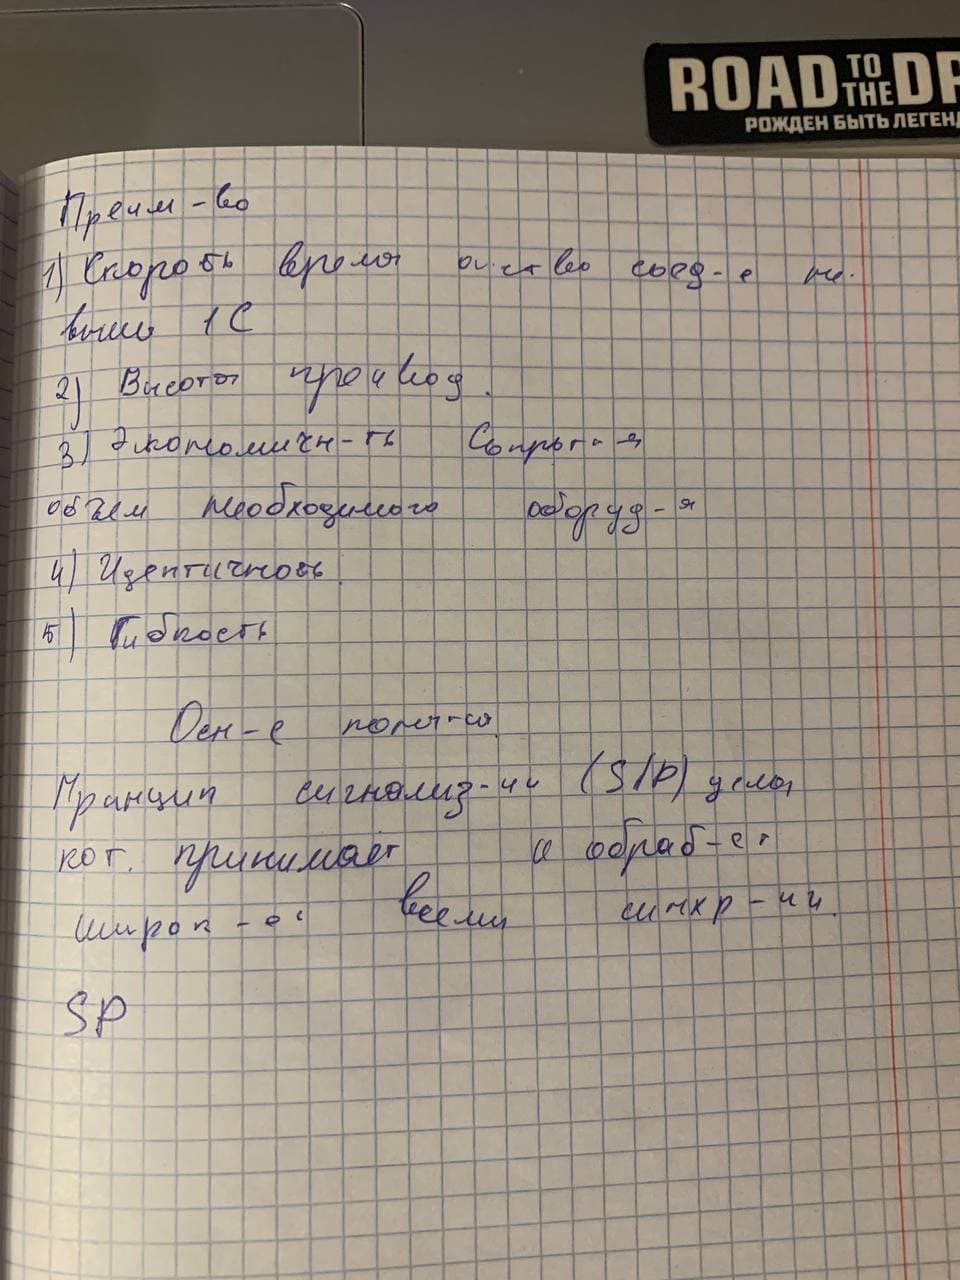 ROAD TO THE DR
РОЖДЕН БЫТЬ ЛЕГЕНД
Преим-во
1) Скорость время соед-е не
выше 1С
2) Высоты производ.
3) Экономичн-ть
объем необходимого оборуд-я
4) Идентичность
5) Гибкость
Осн-е
Принцип сигнализ-ии (S/P) узла
кот. принимает и обраб-ет
всеми синхр-ии.
SP